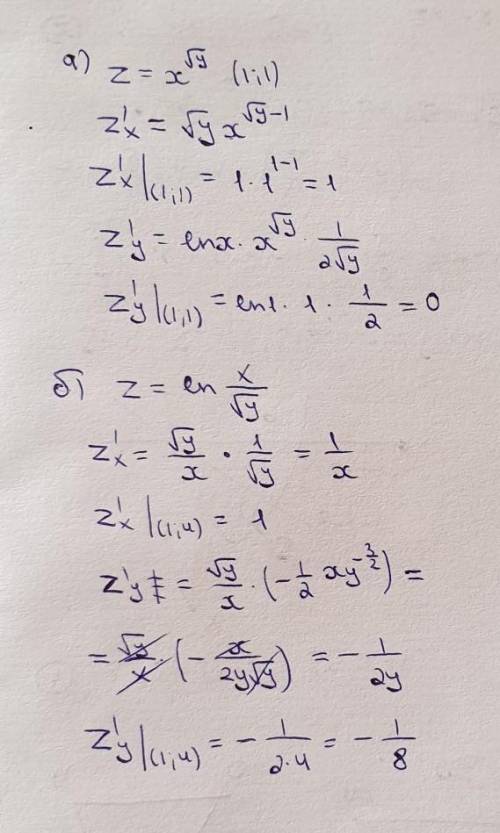 а) z = x^√y (1;1)
z'x = √y x^√y-1
z'x|(1;1) = 1 · 1^1-1 = 1
z'y = lnx · x^√y · 1/2√y
z'y|(1;1) = ln1 · 1 · 1/2 = 0
б) z = ln x/√y
z'x = √y/x · 1/√y = 1/x
z'x|(1;4) = 1
z'y = √y/x · (-1/2 xy^-3/2) =
= √y/x (- x/2y√y) = - 1/2y
z'y|(1;4) = - 1/2·4 = - 1/8